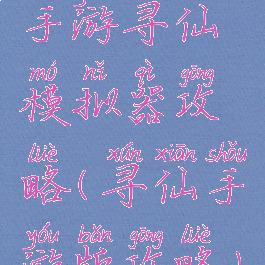 手游寻仙
mó nǐ qì gōng
模拟器攻
lüè xún xiān shǒu
略(寻仙手
yóu bǎn gōng lüè
游版攻略)